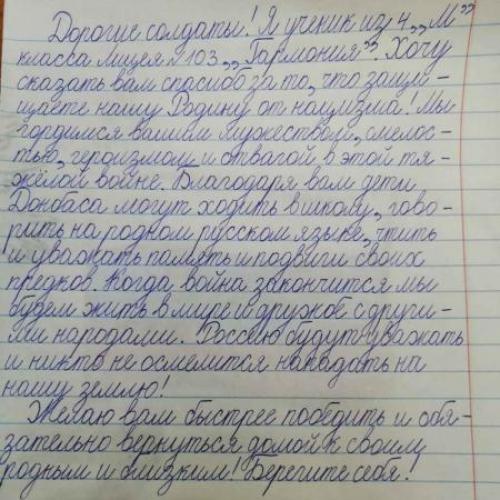 Дорогие солдаты! Я ученик из 4 „М”
класса Лицея №103 „Гармония”. Хочу
сказать вам спасибо за то, что защи-
щаете нашу Родину от нацизма! Мы
гордимся вашим мужеством, смелос-
тью, героизмом и отвагой в этой тя-
жёлой войне. Благодаря вам дети
Донбаса могут ходить в школу, гово-
рить на родном русском языке, чтить
и уважать память и подвиги своих
предков. Когда война закончится мы
будем жить в мире и дружбе с други-
ми народами. Россею будут уважать
и никто не осмелится нападать на
нашу землю!
Желаю вам быстрее победить и обя-
зательно вернуться домой к своим
родным и близким! Берегите себя!